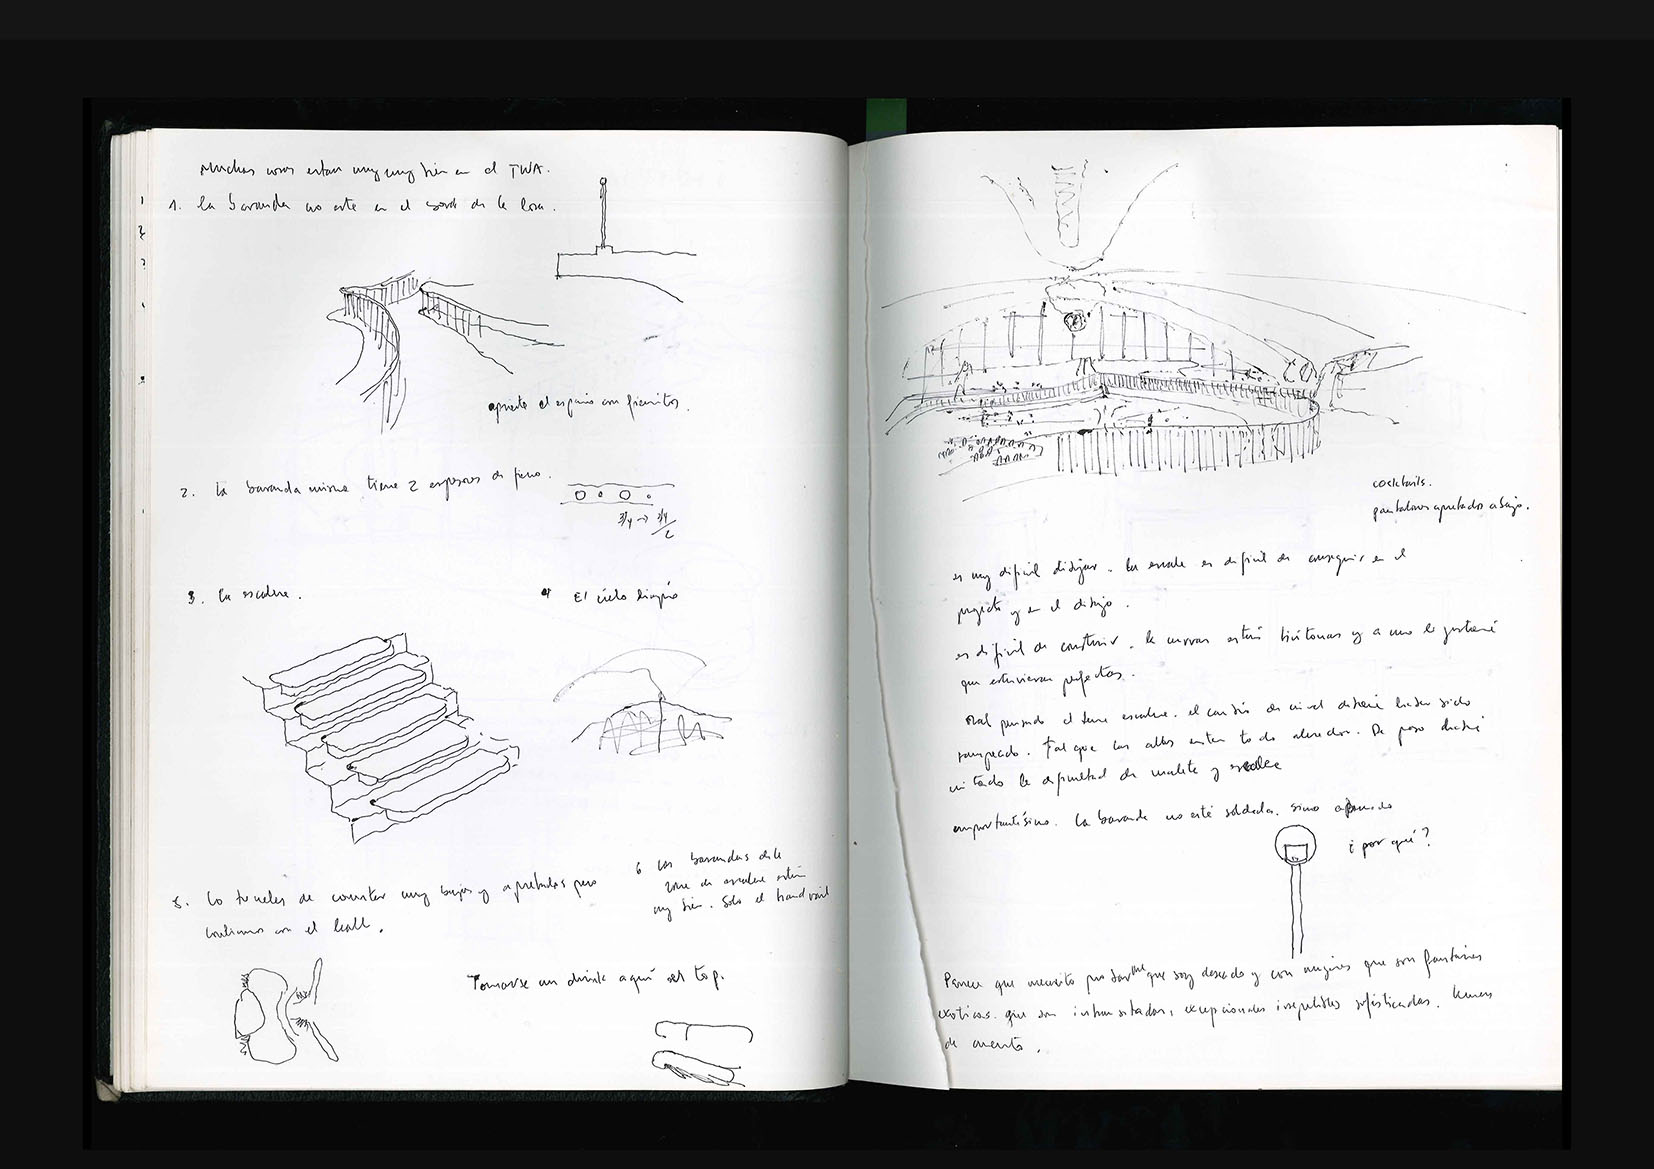 Muchas cosas estan muy muy bien en el TWA.
1. la baranda no esta en el borde de la losa.
apreta el espacio con fierritos.
2. la baranda misma tiene 2 espesores de fierro.
3/4 → 3/4/2
3. la escalera.
4 El cielo limpio
5. Lo tuneles de conectar muy bajos y apretados pero
continuos con el hall.
6 las barandas de la
zona de escalera están
muy bien. Solo el handrail
Tomarse un drink aquí es el top.
cocktails.
pantalones apretados abajo.
es muy dificil dibujar. la escala es dificil de conseguir en el
proyecto y en el dibujo.
es dificil de construir. la curvas están y a uno le gustaría
que estuvieran perfectas.
Mal pensado el tema escalera. el cambio de nivel debería haber sido
rampeado. Tal que las altos esten todo alrededor. De paso habría
evitado la de maleta y escalera
importantísimo. La baranda no esté soldada. sino
¿por qué?
Parece que necesito que soy deseado y con mujeres que son fantasías
exóticas. que son excepcionales irrepetibles sofisticadas.
de cuento.